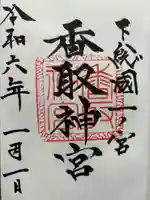 下総國一之宮
香取神宮
令和六年一月一日